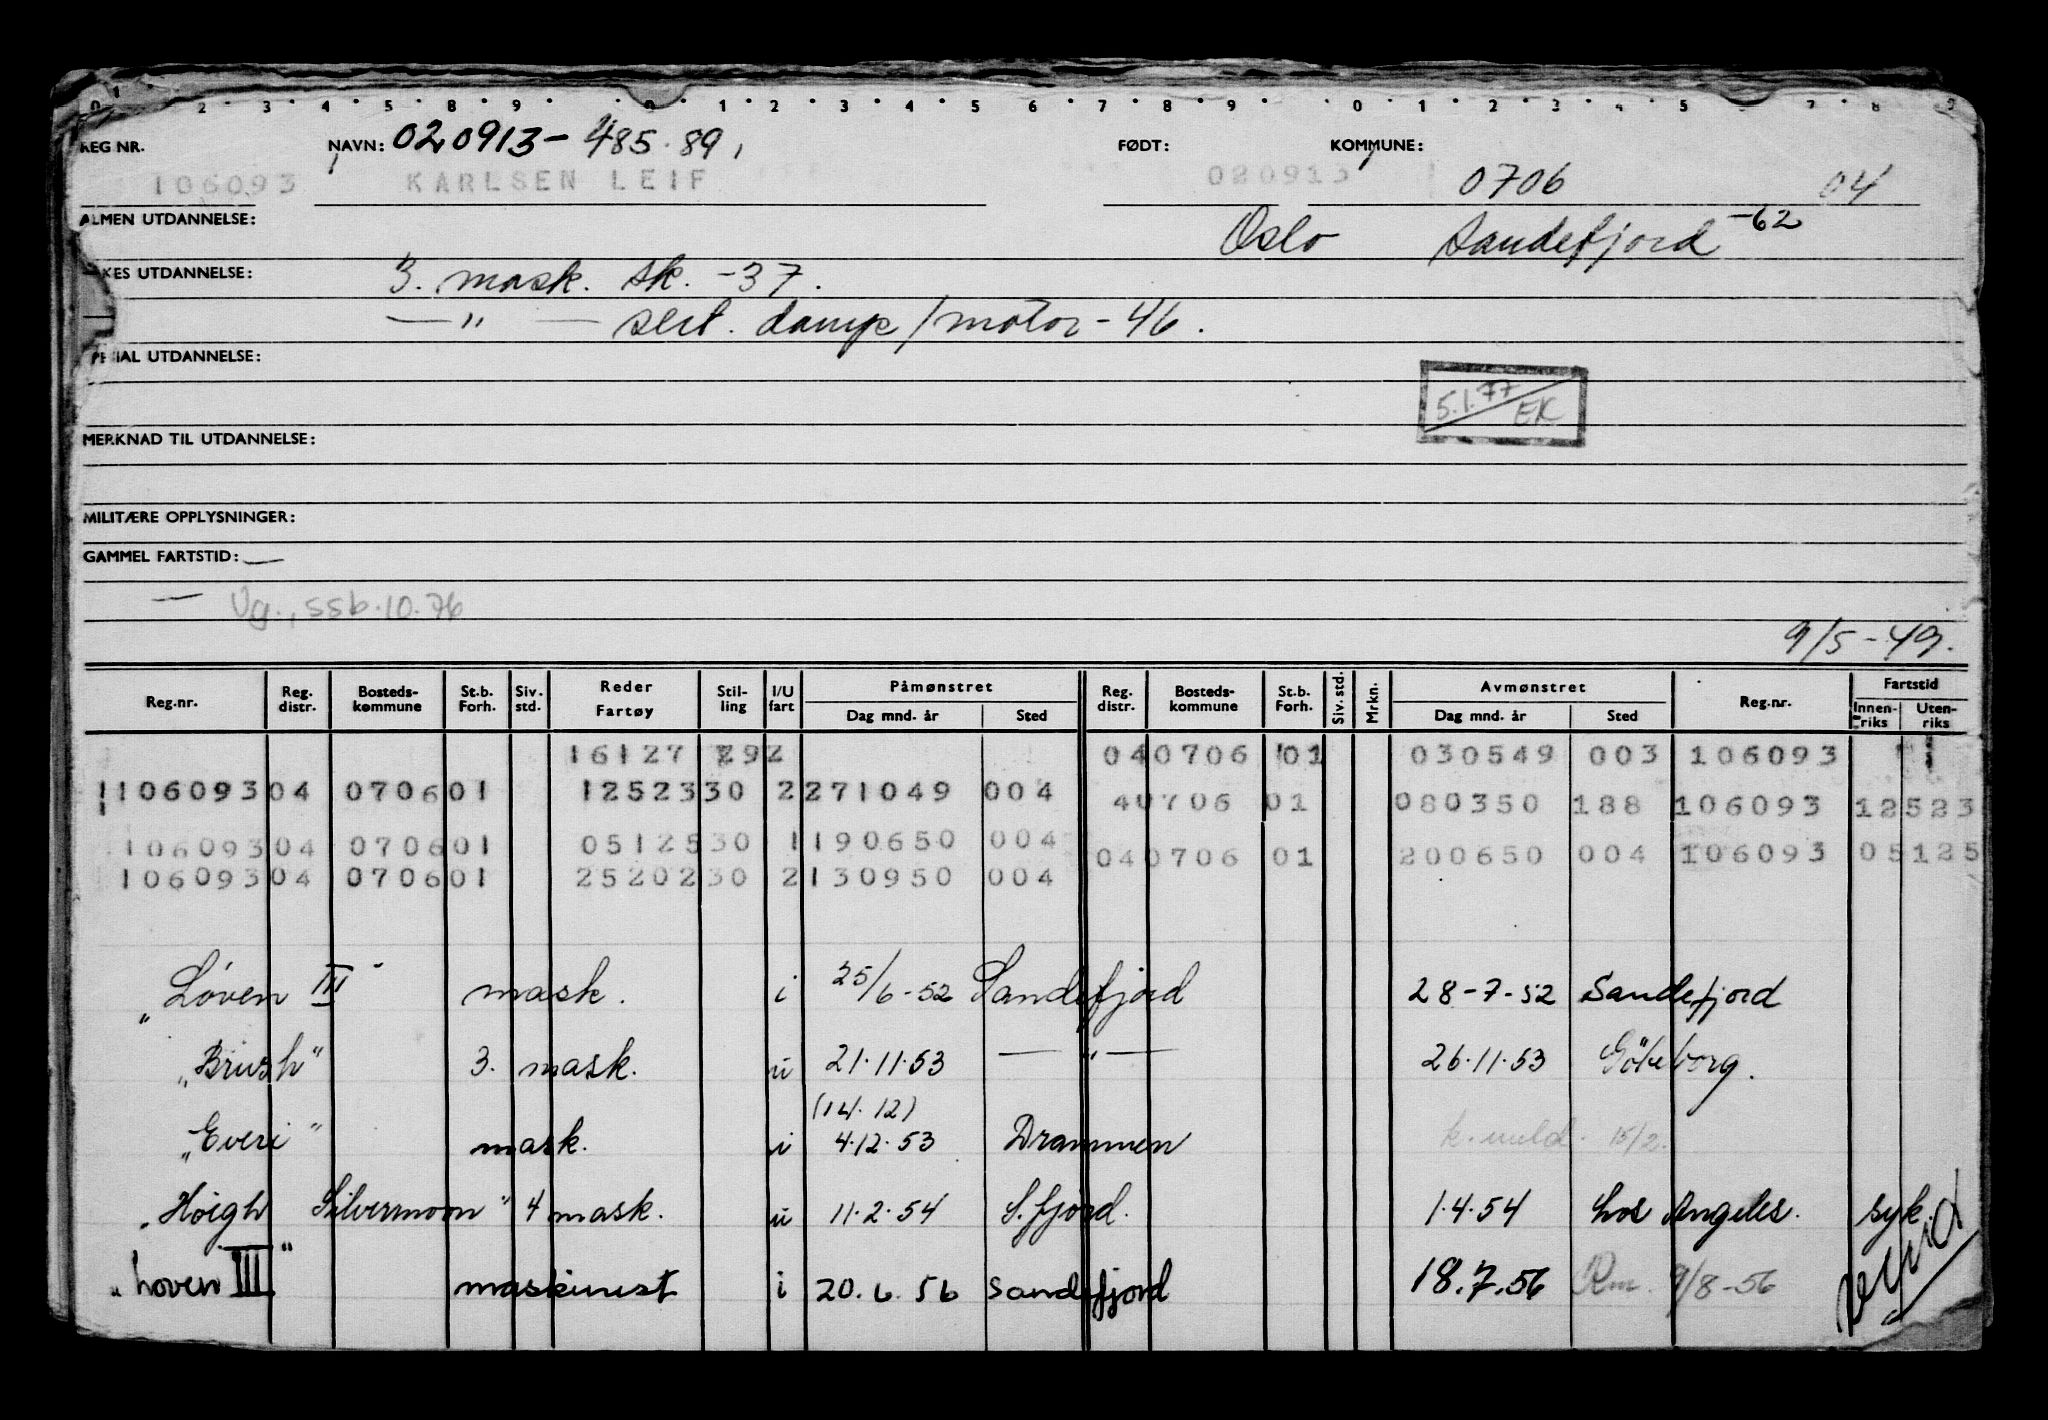 0 1 2 3 4 5 8 9 0 1 2 3 4 5 6 7 8 9 0 1 2 3 4 5 7 8 9
REG NR. NAVN: 020913-485.89, FØDT: KOMMUNE:
106093 KARLSEN LEIF 020913 0706 04
ALMEN UTDANNELSE: Oslo Sandefjord -62
KES UTDANNELSE: 3. mask. sk. -37.
— " — sert. damp/motor - 46.
SPESIAL UTDANNELSE:
5.1.77 EK
MERKNAD TIL UTDANNELSE:
MILITÆRE OPPLYSNINGER:
GAMMEL FARTSTID: —
— Ug., ssb. 10.76
9/5-49.
Reg.nr. Reg. distr. Bosteds-kommune St.b. Forh. Siv. std. Reder Fartøy Stil-ling I/U fart Påmønstret Dag mnd. år Sted Reg. distr. Bosteds-kommune St.b. Forh. Siv. std. Mrkn. Avmønstret Dag mnd. år Sted Reg.nr. Fartstid Innen-riks Uten-riks
16127 292 040706 01 030549 003 106093 1
106093 04 0706 01 12523 30 2 271049 004 40706 01 080350 188 106093 12523
106093 04 0706 01 05125 30 1 190650 004 040706 01 200650 004 106093 05125
106093 04 0706 01 25202 30 2 130950 004
„Løven III" mask. i 25/6-52 Sandefjord 28-7-52 Sandefjord
„Brush" 3. mask. u 21.11.53 — " — 26.11.53 Göteborg.
(14.12)
„Everi" mask. i 4.12.53 Drammen k. meld. 15/2.
„Høigh Silvermoon" 4 mask. u 11.2.54 S.fjord. 1.4.54 Los Angeles. syk.
„Løven III" maskinist i 20.6.56 Sandefjord 18.7.56 Rm. 9/8-56